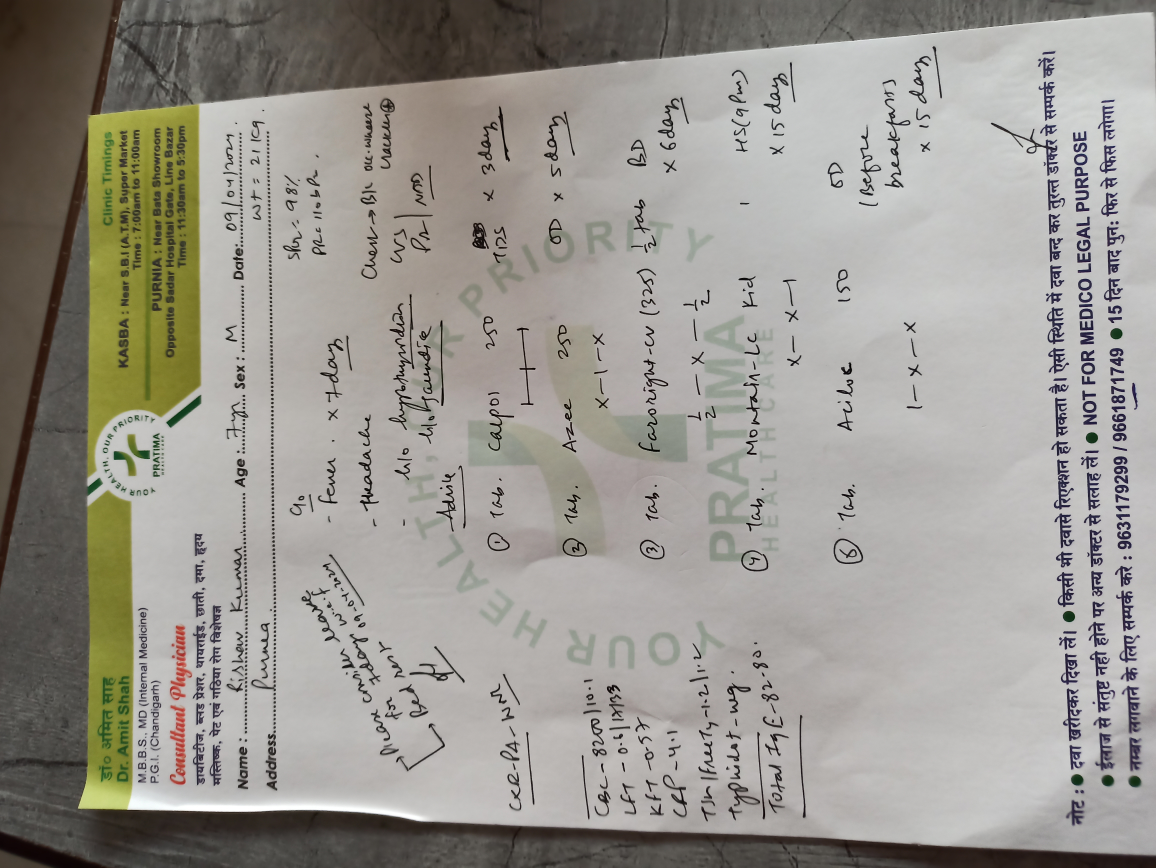 डॉ० अमित साह
Dr. Amit Shah
M.B.B.S., MD (Internal Medicine)
P.G.I. (Chandigarh)
Consultant Physician
डायबिटीज, ब्लड प्रेशर, थायराईड, छाती, दमा, हृदय
मस्तिष्क, पेट एवं गठिया रोग विशेषज्ञ
YOUR HEALTH, OUR PRIORITY
PRATIMA
HEALTH CARE
Clinic Timings
KASBA : Near S.B.I (A.T.M), Super Market
Time : 7:00am to 11:00am
PURNIA : Near Bata Showroom
Opposite Sadar Hospital Gate, Line Bazar
Time : 11:30am to 5:30pm
Name : Rishav Kumar Age : 7yr Sex : M Date: 09/04/2024
Address Purnea wt = 21 kg.
SPO2 = 98%
PR = 110 bpm.
C/o
- Fever x 7 day
- Headache
- h/o hypothyroidism
h/o Jaundice
Chest → B/L occ. wheeze
crackles ⊕
CVS
P/A | NAD
Please consider leave
for 7 days w.e.f
09-04-2024
→ Bed rest
CXR-PA-WNL
CBC - 8200/10.1
LFT - 0.6/17/33
KFT - 0.57
CRP - 4.1
TSH/Free T4 - 1.2/1.2
Typhidot - neg.
Total IgE - 82.80.
Advise
① Tab. Calpol 250 TDS x 3 day
② Tab. Azee 250 OD x 5 day
x-1-x
③ Tab. Faroright-CV (325) ½ tab BD
x 6 day
½ - x - ½
④ Tab. Montair-Lc Kid 1 HS (9 Pm)
x 15 day
x-x-1
Tab. Aciloc 150 OD
(Before
breakfast)
1-x-x x 15 day
YOUR HEALTH, OUR PRIORITY
PRATIMA
HEALTH CARE
नोट : ● दवा खरीदकर दिखा लें। ● किसी भी दवासे रिएक्शन हो सकता है। ऐसी स्थिति में दवा बन्द कर तुरन्त डॉक्टर से सम्पर्क करें।
● ईलाज से संतुष्ट नही होने पर अन्य डॉक्टर से सलाह लें। ● NOT FOR MEDICO LEGAL PURPOSE
● नम्बर लगवाने के लिए सम्पर्क करे : 9631179299 / 9661871749 ● 15 दिन बाद पुनः फिर से फिस लगेगा।